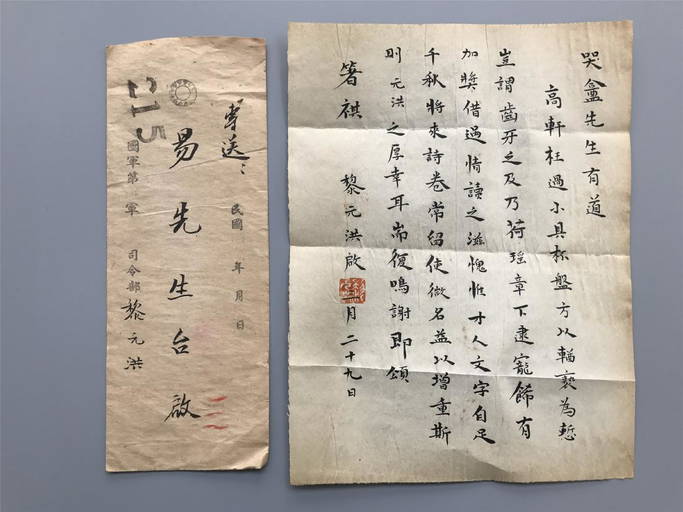 哭盦先生有道
高軒枉過小具杯盤方以輶褻為慙
豈謂齒牙之及乃荷瑤章下逮寵飾有
加獎借過情讀之滋愧惟才人文字自足
千秋將來詩卷常留使微名益以增重斯
則元洪之厚幸耳耑復鳴謝即頌
箸祺 黎元洪啟 月二十九日
專送
民國 年 月 日
易先生台啟
215
國軍第 軍 司令部 黎元洪